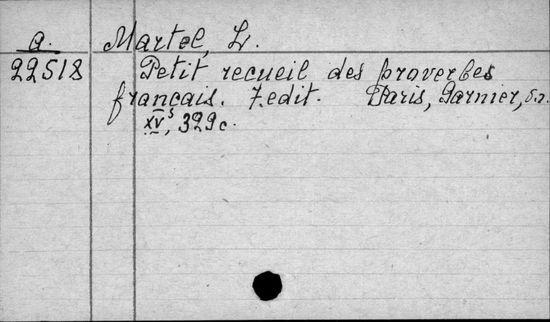 a. Martel, L.
22518 Petit recueil des proverbes
français. 7.edit. Paris, Garnier, s.a.
XV, 329 c.